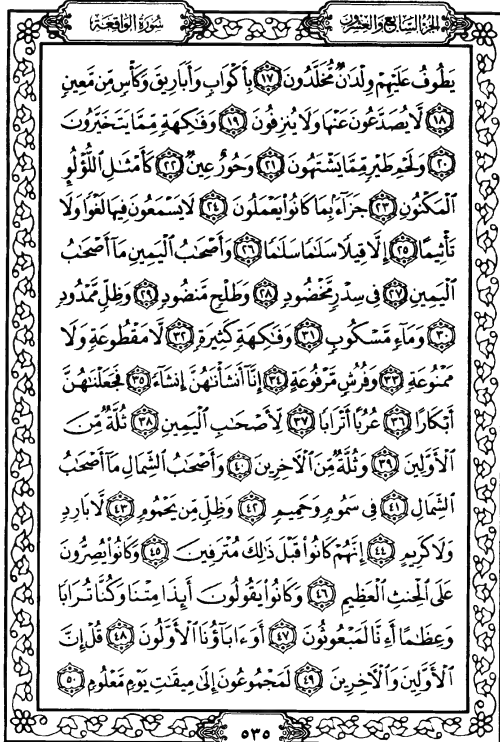 سُورَةُ الوَاقِعَة الجُزْءُ السَّابِعُ وَالعِشْرُون
يَطُوفُ عَلَيْهِمْ وِلْدَٰنٌ مُّخَلَّدُونَ ١٧ بِأَكْوَابٍ وَأَبَارِيقَ وَكَأْسٍ مِّن مَّعِينٍ
١٨ لَّا يُصَدَّعُونَ عَنْهَا وَلَا يُنزِفُونَ ١٩ وَفَٰكِهَةٍ مِّمَّا يَتَخَيَّرُونَ
٢٠ وَلَحْمِ طَيْرٍ مِّمَّا يَشْتَهُونَ ٢١ وَحُورٌ عِينٌ ٢٢ كَأَمْثَٰلِ اللُّؤْلُؤِ
الْمَكْنُونِ ٢٣ جَزَآءًۢ بِمَا كَانُوا۟ يَعْمَلُونَ ٢٤ لَا يَسْمَعُونَ فِيهَا لَغْوًا وَلَا
تَأْثِيمًا ٢٥ إِلَّا قِيلًا سَلَٰمًا سَلَٰمًا ٢٦ وَأَصْحَٰبُ الْيَمِينِ مَآ أَصْحَٰبُ
الْيَمِينِ ٢٧ فِى سِدْرٍ مَّخْضُودٍ ٢٨ وَطَلْحٍ مَّنضُودٍ ٢٩ وَظِلٍّ مَّمْدُودٍ
٣٠ وَمَآءٍ مَّسْكُوبٍ ٣١ وَفَٰكِهَةٍ كَثِيرَةٍ ٣٢ لَّا مَقْطُوعَةٍ وَلَا
مَمْنُوعَةٍ ٣٣ وَفُرُشٍ مَّرْفُوعَةٍ ٣٤ إِنَّآ أَنشَأْنَٰهُنَّ إِنشَآءً ٣٥ فَجَعَلْنَٰهُنَّ
أَبْكَارًا ٣٦ عُرُبًا أَتْرَابًا ٣٧ لِّأَصْحَٰبِ الْيَمِينِ ٣٨ ثُلَّةٌ مِّنَ
الْأَوَّلِينَ ٣٩ وَثُلَّةٌ مِّنَ الْآخِرِينَ ٤٠ وَأَصْحَٰبُ الشِّمَالِ مَآ أَصْحَٰبُ
الشِّمَالِ ٤١ فِى سَمُومٍ وَحَمِيمٍ ٤٢ وَظِلٍّ مِّن يَحْمُومٍ ٤٣ لَّا بَارِدٍ
وَلَا كَرِيمٍ ٤٤ إِنَّهُمْ كَانُوا۟ قَبْلَ ذَٰلِكَ مُتْرَفِينَ ٤٥ وَكَانُوا۟ يُصِرُّونَ
عَلَى الْحِنثِ الْعَظِيمِ ٤٦ وَكَانُوا۟ يَقُولُونَ أَئِذَا مِتْنَا وَكُنَّا تُرَابًا
وَعِظَٰمًا أَءِنَّا لَمَبْعُوثُونَ ٤٧ أَوَءَابَآؤُنَا الْأَوَّلُونَ ٤٨ قُلْ إِنَّ
الْأَوَّلِينَ وَالْآخِرِينَ ٤٩ لَمَجْمُوعُونَ إِلَىٰ مِيقَٰتِ يَوْمٍ مَّعْلُومٍ ٥٠
٥٣٥